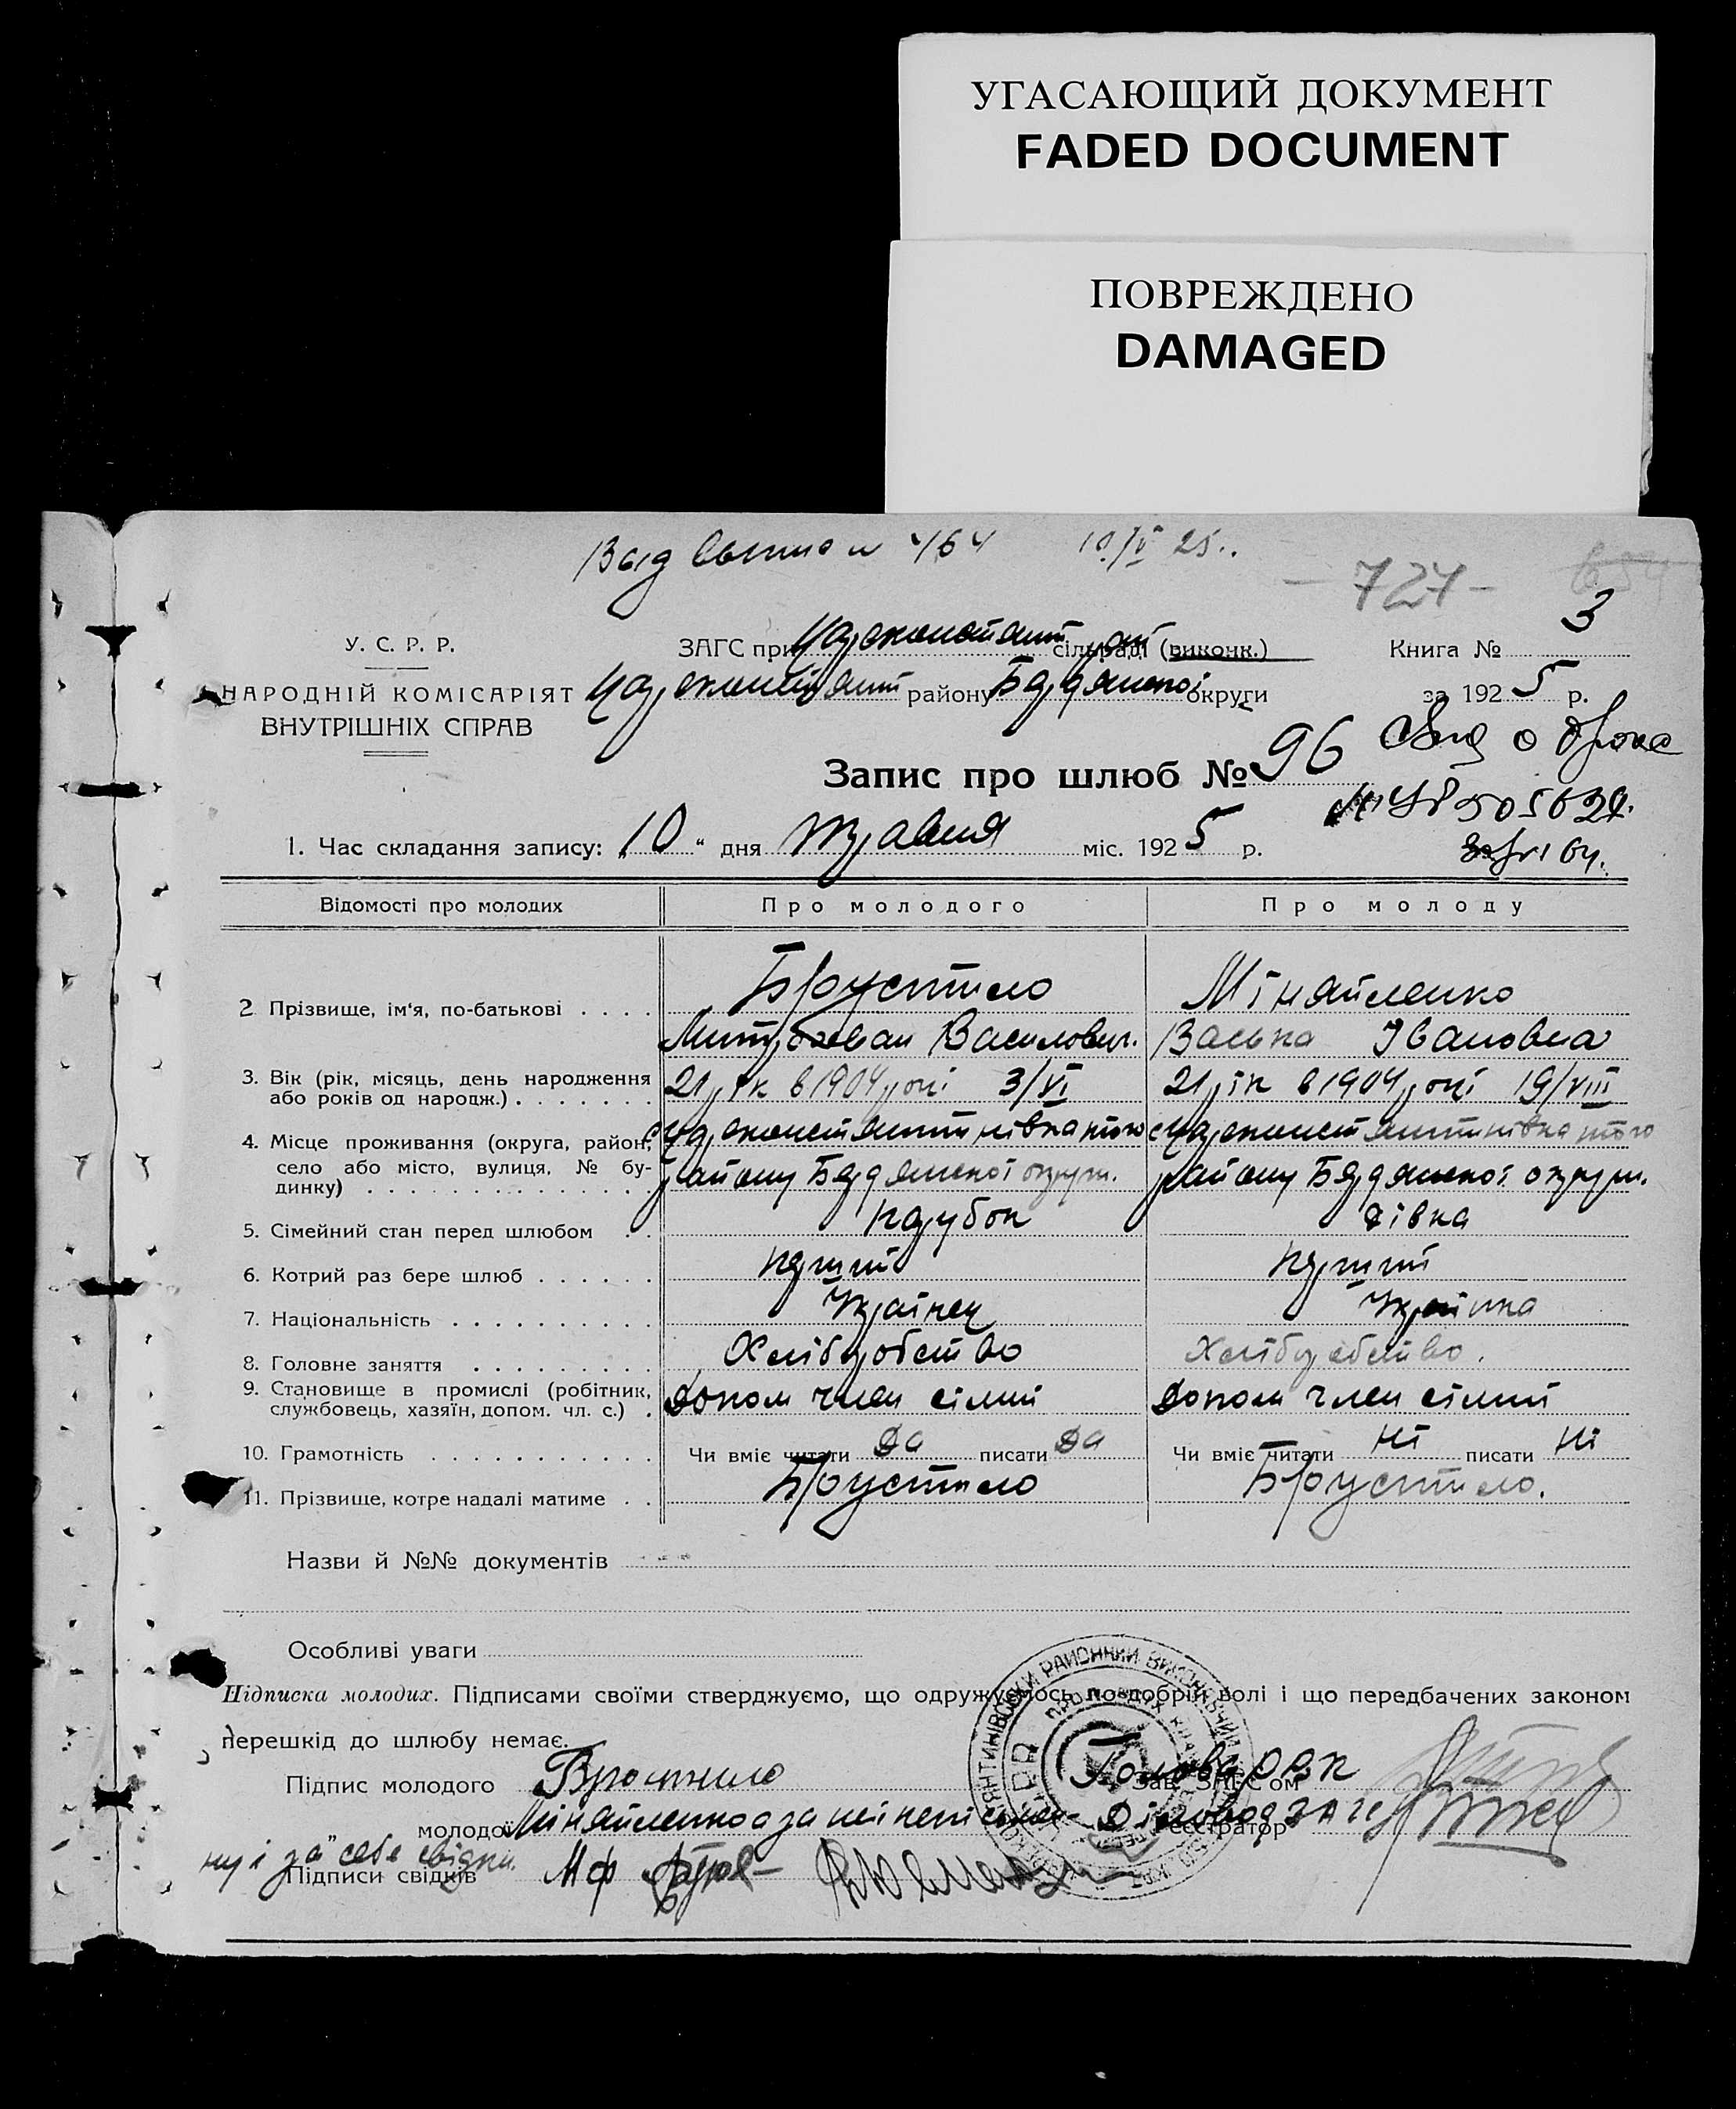 УГАСАЮЩИЙ ДОКУМЕНТ
FADED DOCUMENT
ПОВРЕЖДЕНО
DAMAGED
464 10/V 25..
- 727 -
У. С. Р. Р.
НАРОДНІЙ КОМІСАРІЯТ
ВНУТРІШНІХ СПРАВ
ЗАГС при Цареконстант сільраді (виконк.)
Цареконстант району Бердянської округи
Книга № 3
за 1925 р.
Запис про шлюб № 96
Свид о браке
1. Час складання запису: „10“ дня травня міс. 1925 р.
Відомості про молодих Про молодого Про молоду
2 Прізвище, ім'я, по-батькові . . . . Брустило Міняйленко
Митрофан Василович. Васька Івановна
3. Вік (рік, місяць, день народження або років од народж.) . . . . . . . 21 рік в 1904 році 3/VI 21 рік в 1904 році 19/VIII
4. Місце проживання (округа, район, село або місто, вулиця, № будинку) . . . . . . . . . . . . . с Цареконстянтинівка того с Цареконстянтинівка того
району Бердянської округи. району Бердянської округи.
5. Сімейний стан перед шлюбом . . парубок дівка
6. Котрий раз бере шлюб . . . . . .
7. Національність . . . . . . . . . . Українец Українка
8. Головне заняття . . . . . . . . . Хліборобство Хліборобство.
9. Становище в промислі (робітник, службовець, хазяїн, допом. чл. с.) . Допом член сімии Допом член сімии
10. Грамотність . . . . . . . . . . . Чи вміє читати да писати да Чи вміє читати ні писати ні
11. Прізвище, котре надалі матиме . . Брустило Брустило.
Назви й №№ документів
Особливі уваги
Підписка молодих. Підписами своїми стверджуємо, що одружуємось по добрій волі і що передбачених законом
перешкід до шлюбу немає.
Підпис молодого Зав. ЗАГС'ом Голова РВК
молодої Міняйленко а за неї Реєстратор Діловод ЗАГС
ну і за себе свідки.
Підписи свідків